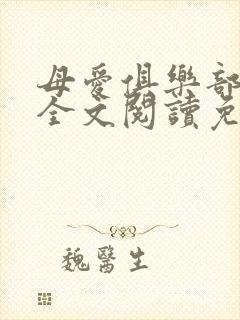 母愛俱樂部
全文閱讀免
魏醫生